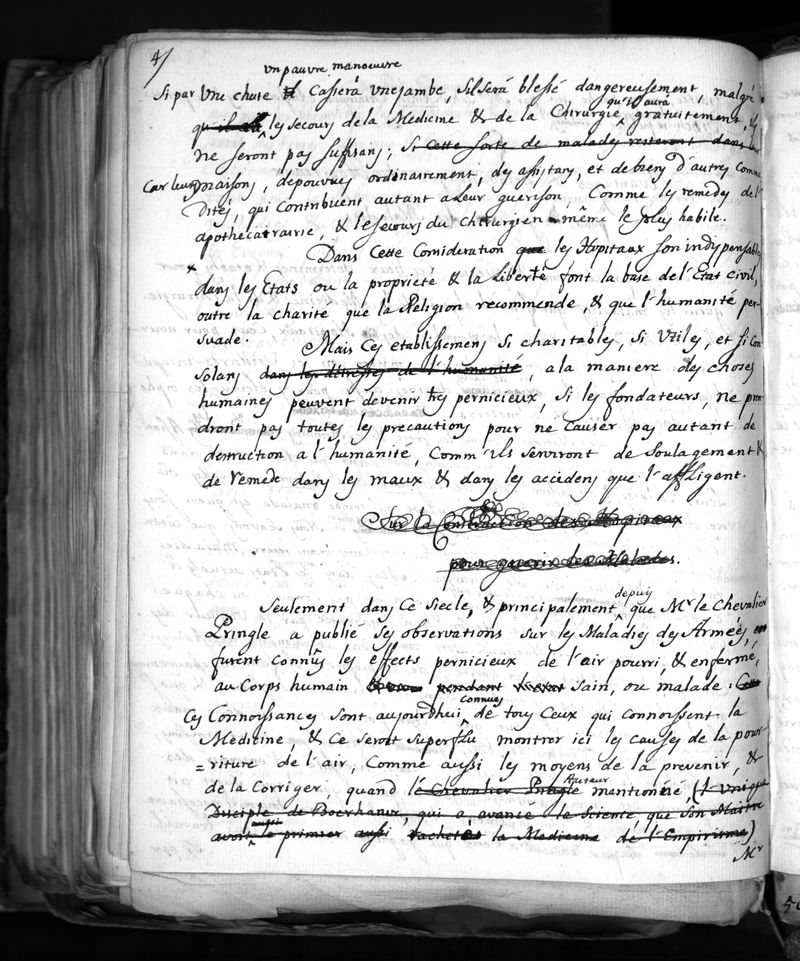 4/
un pauvre manoeuvre
Si par une chute il Cassera une jambe, S'il sera blessé dangereusement, malgré
qu'il aura
qu'il les secours de la Medicine & de la Chirurgie gratuitement, ils
ne seront pas suffisans; Si cette sorte de malades resteront dans
Car leurs maisons, depouvues ordinairement, des assistans, et de biens d'autres Comm
dités, qui contribuent autant a Leur guerison, Comme les remedes de l'
apothecairairie, & le secours du Chirurgien même le plus habile.
Dans Cette Consideration que les Hopitaux son indispensables
dans les Etats ou la proprieté & la Liberté font la base de l'Etat civil,
outre la charité que la Religion recommende, & que l'humanité per-
suade.
Mais Ces etablissemens si charitables, si utiles, et si Con
solans dans les détresses de l'humanité, a la maniere des choses
humaines peuvent devenir tres pernicieux, si les fondateurs, ne pren
dront pas toutes les precautions pour ne causer pas autant de
destruction a l'humanité, Comm'ils serviront de Soulagement &
de remede dans les maux & dans les accidens que l'affligent.
Sur la Construction des Hopitaux
pour guerir les Malades.
depuis
Seulement dans Ce siecle, & principalement que Mr le Chevalier
Pringle a publié ses observations sur les Maladies des Armées,
furent connûs les effects pernicieux de l'air pourri, & enfermé,
au Corps humain pendant sain, ou malade:
connues
Ces Connoissances sont aujourdhui de tous Ceux qui connoissent la
Medicine, & Ce seroit superflu montrer ici les causes de la pour
=riture de l'air, Comme aussi les moyens de la prevenir, &
Auteur
de la Corriger, quand le Chevalier Pringle mantionné, (l'unique
Disciple de Boerhaave, qui a avancé la Science que son Maitre
aussi
avoit le premier aussi racheté la Medicine de l'Empirisme)
Mr